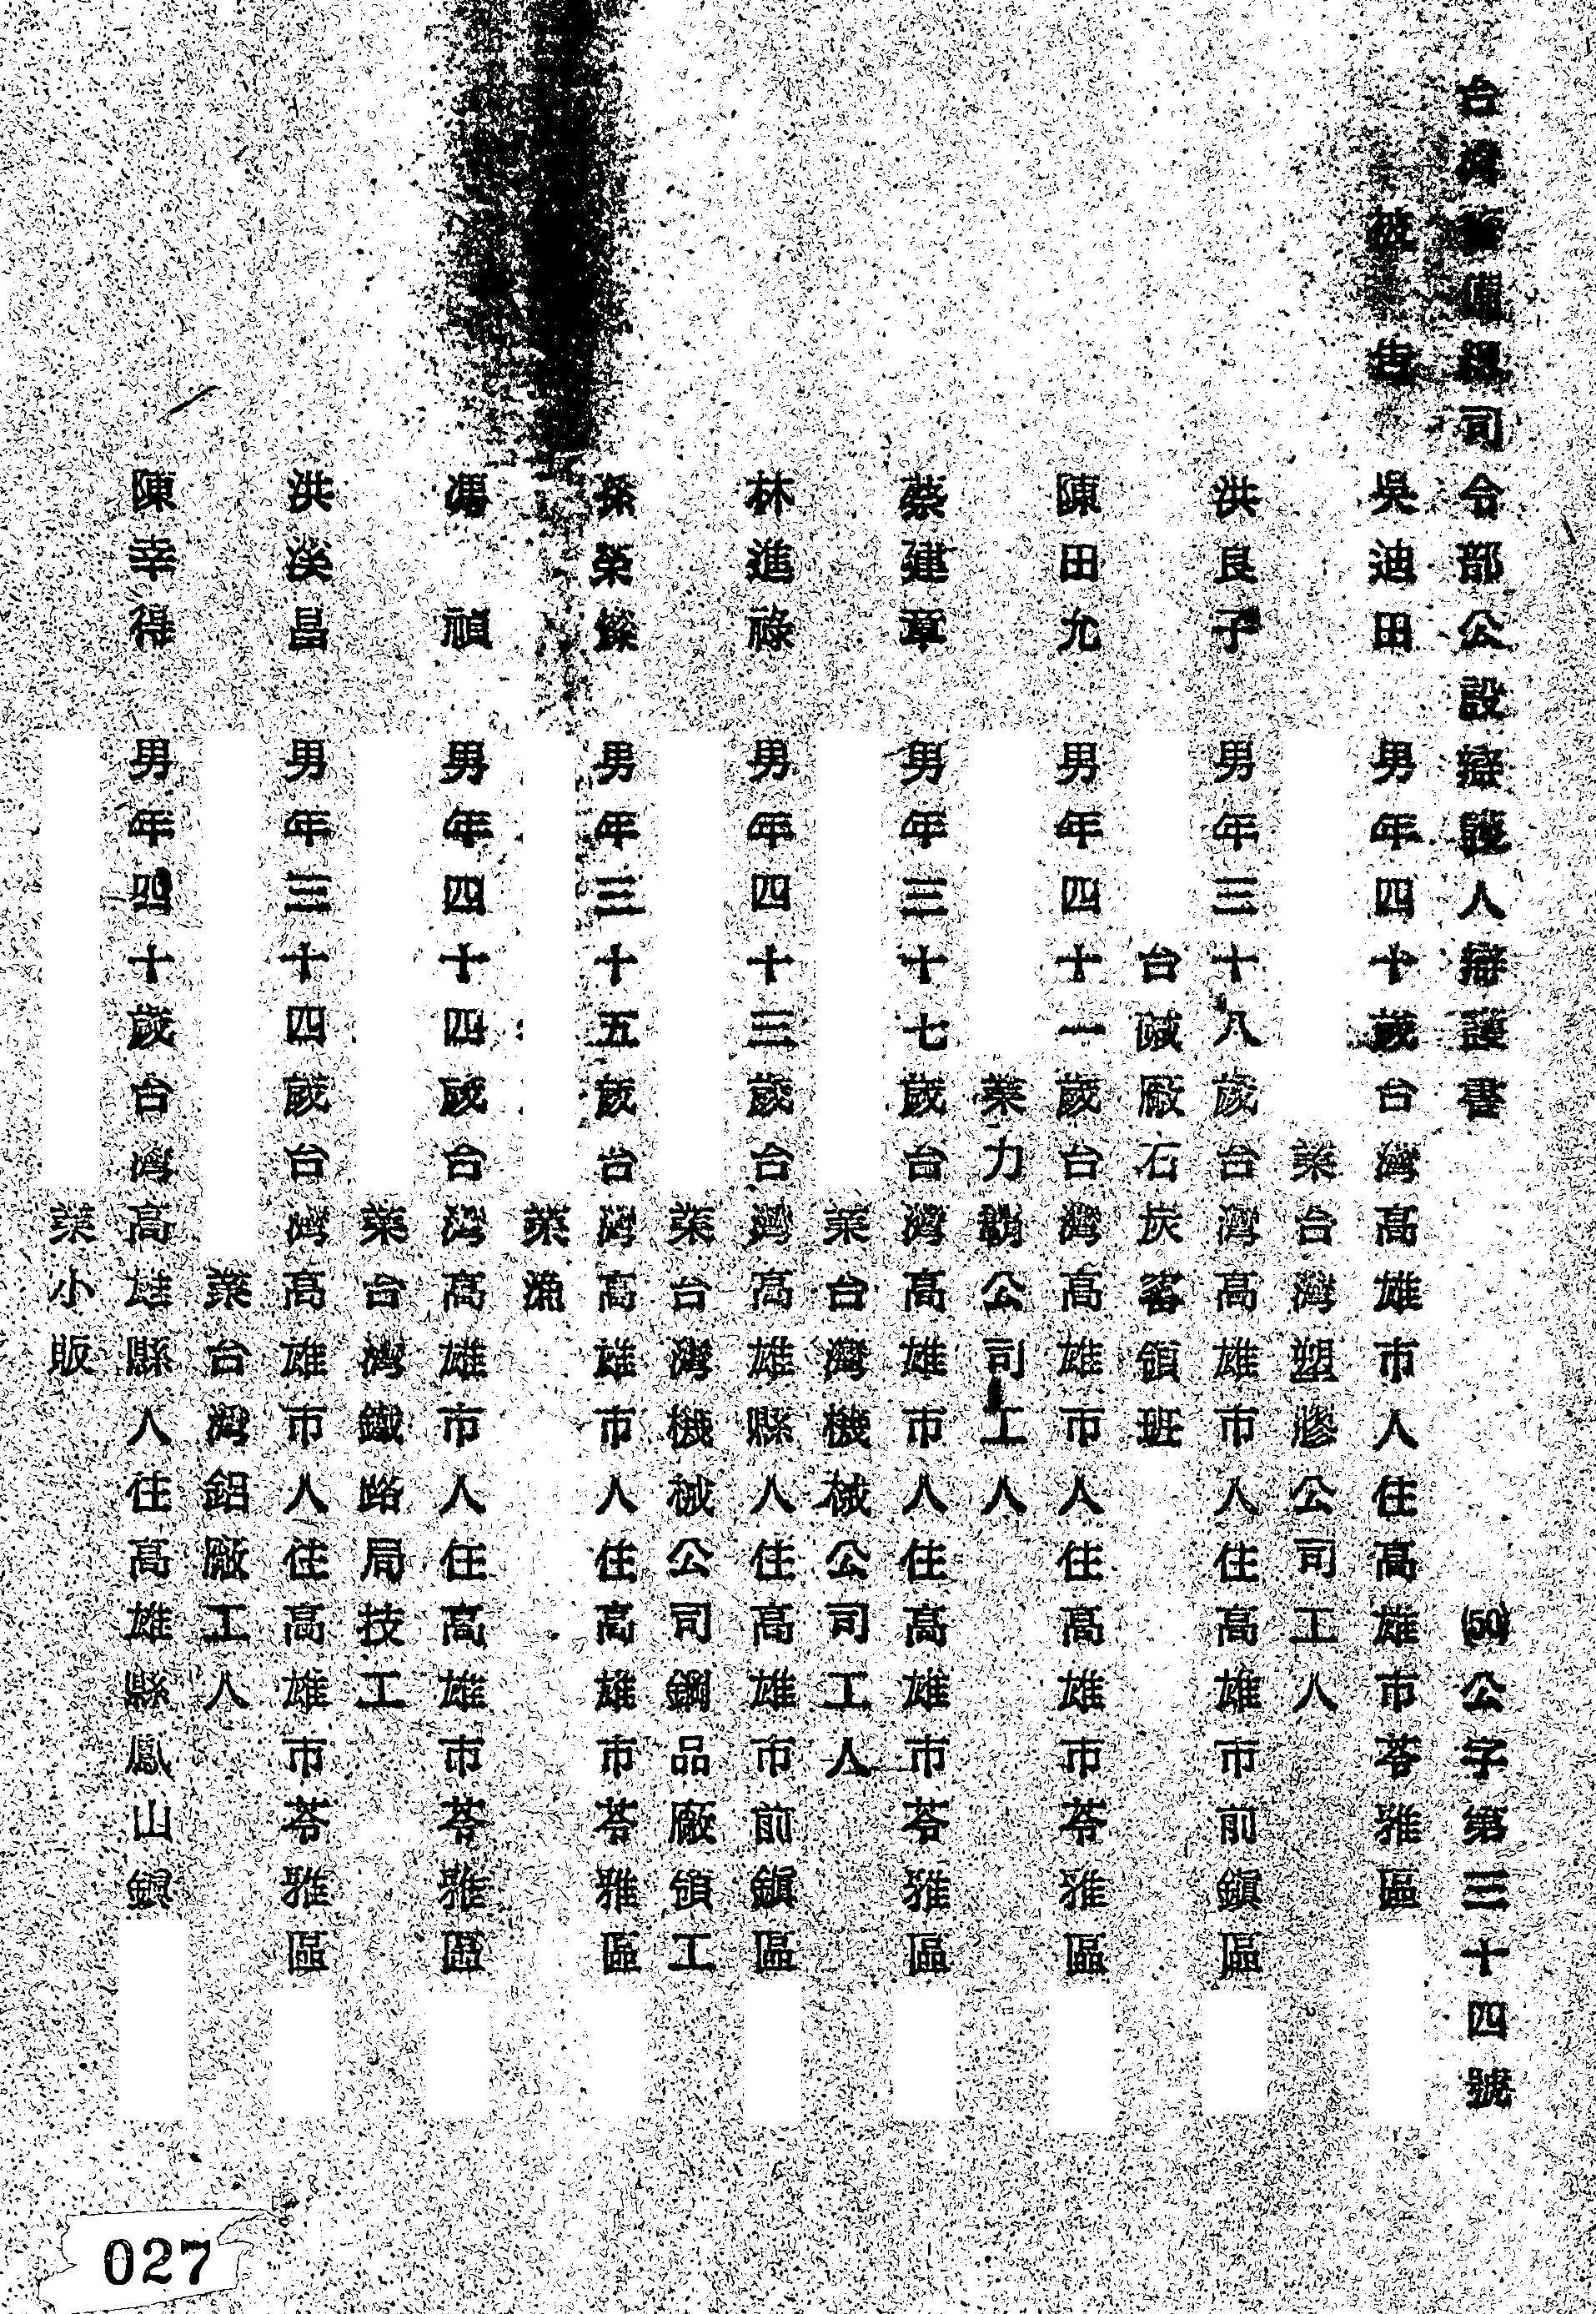 台灣警備總司令部公設辯護人辯護書 (50)公字第三十四號
被告 吳迪田 男年四十歲台灣高雄市人住高雄市苓雅區
業台灣塑膠公司工人
洪良子 男年三十八歲台灣高雄市人住高雄市前鎮區
台碱廠石炭窰領班
陳田九 男年四十一歲台灣高雄市人住高雄市苓雅區
業力霸公司工人
蔡建章 男年三十七歲台灣高雄市人住高雄市苓雅區
業台灣機械公司工人
林進祿 男年四十三歲台灣高雄縣人住高雄市前鎮區
業台灣機械公司鋼品廠領工
孫榮燦 男年三十五歲台灣高雄市人住高雄市苓雅區
業漁
馮禎 男年四十四歲台灣高雄市人住高雄市苓雅區
業台灣鐵路局技工
洪溪昌 男年三十四歲台灣高雄市人住高雄市苓雅區
業台灣鋁廠工人
陳幸得 男年四十歲台灣高雄縣人住高雄縣鳳山鎮
業小販
027